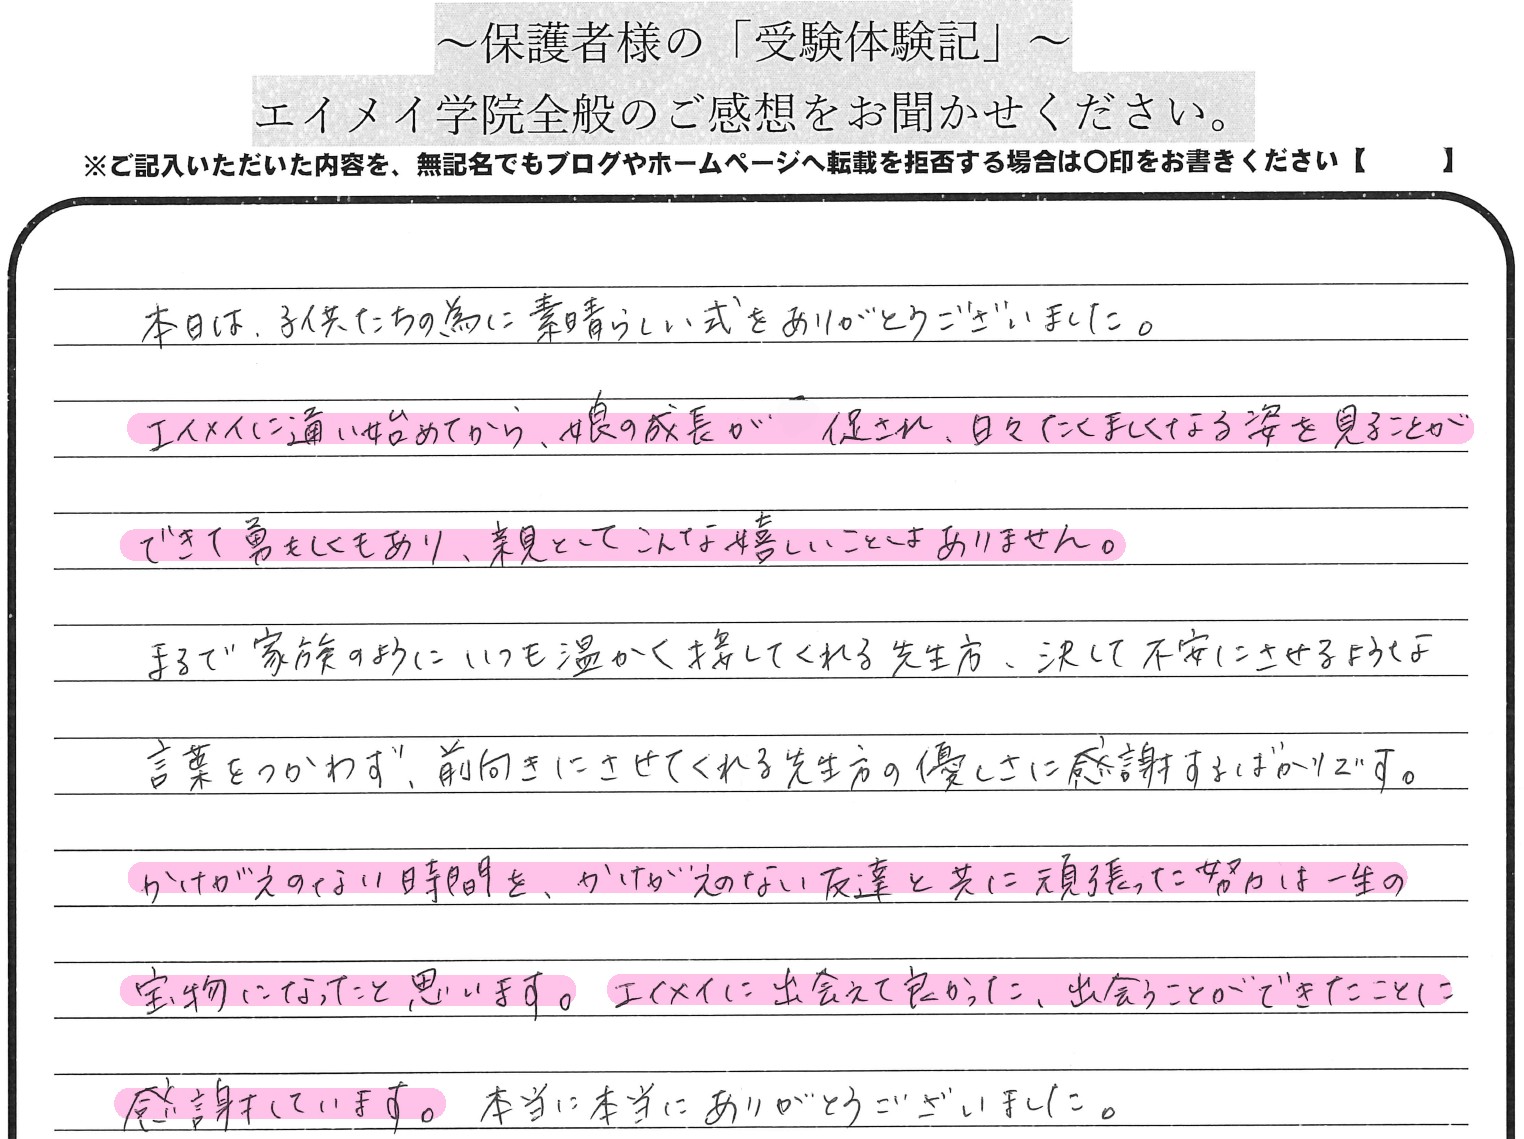 ～保護者様の「受験体験記」～
エイメイ学院全般のご感想をお聞かせください。
※ご記入いただいた内容を、無記名でもブログやホームページへ転載を拒否する場合は〇印をお書きください【　　　】
本日は、子供たちの為に素晴らしい式をありがとうございました。
エイメイに通い始めてから、娘の成長が 促され、日々たくましくなる姿を見ることが
できて勇ましくもあり、親としてこんな嬉しいことはありません。
まるで家族のようにいつも温かく接してくれる先生方、決して不安にさせるような
言葉をつかわず、前向きにさせてくれる先生方の優しさに感謝するばかりです。
かけがえのない時間を、かけがえのない友達と共に頑張った努力は一生の
宝物になったと思います。エイメイに出会えて良かった、出会うことができたことに
感謝しています。本当に本当にありがとうございました。